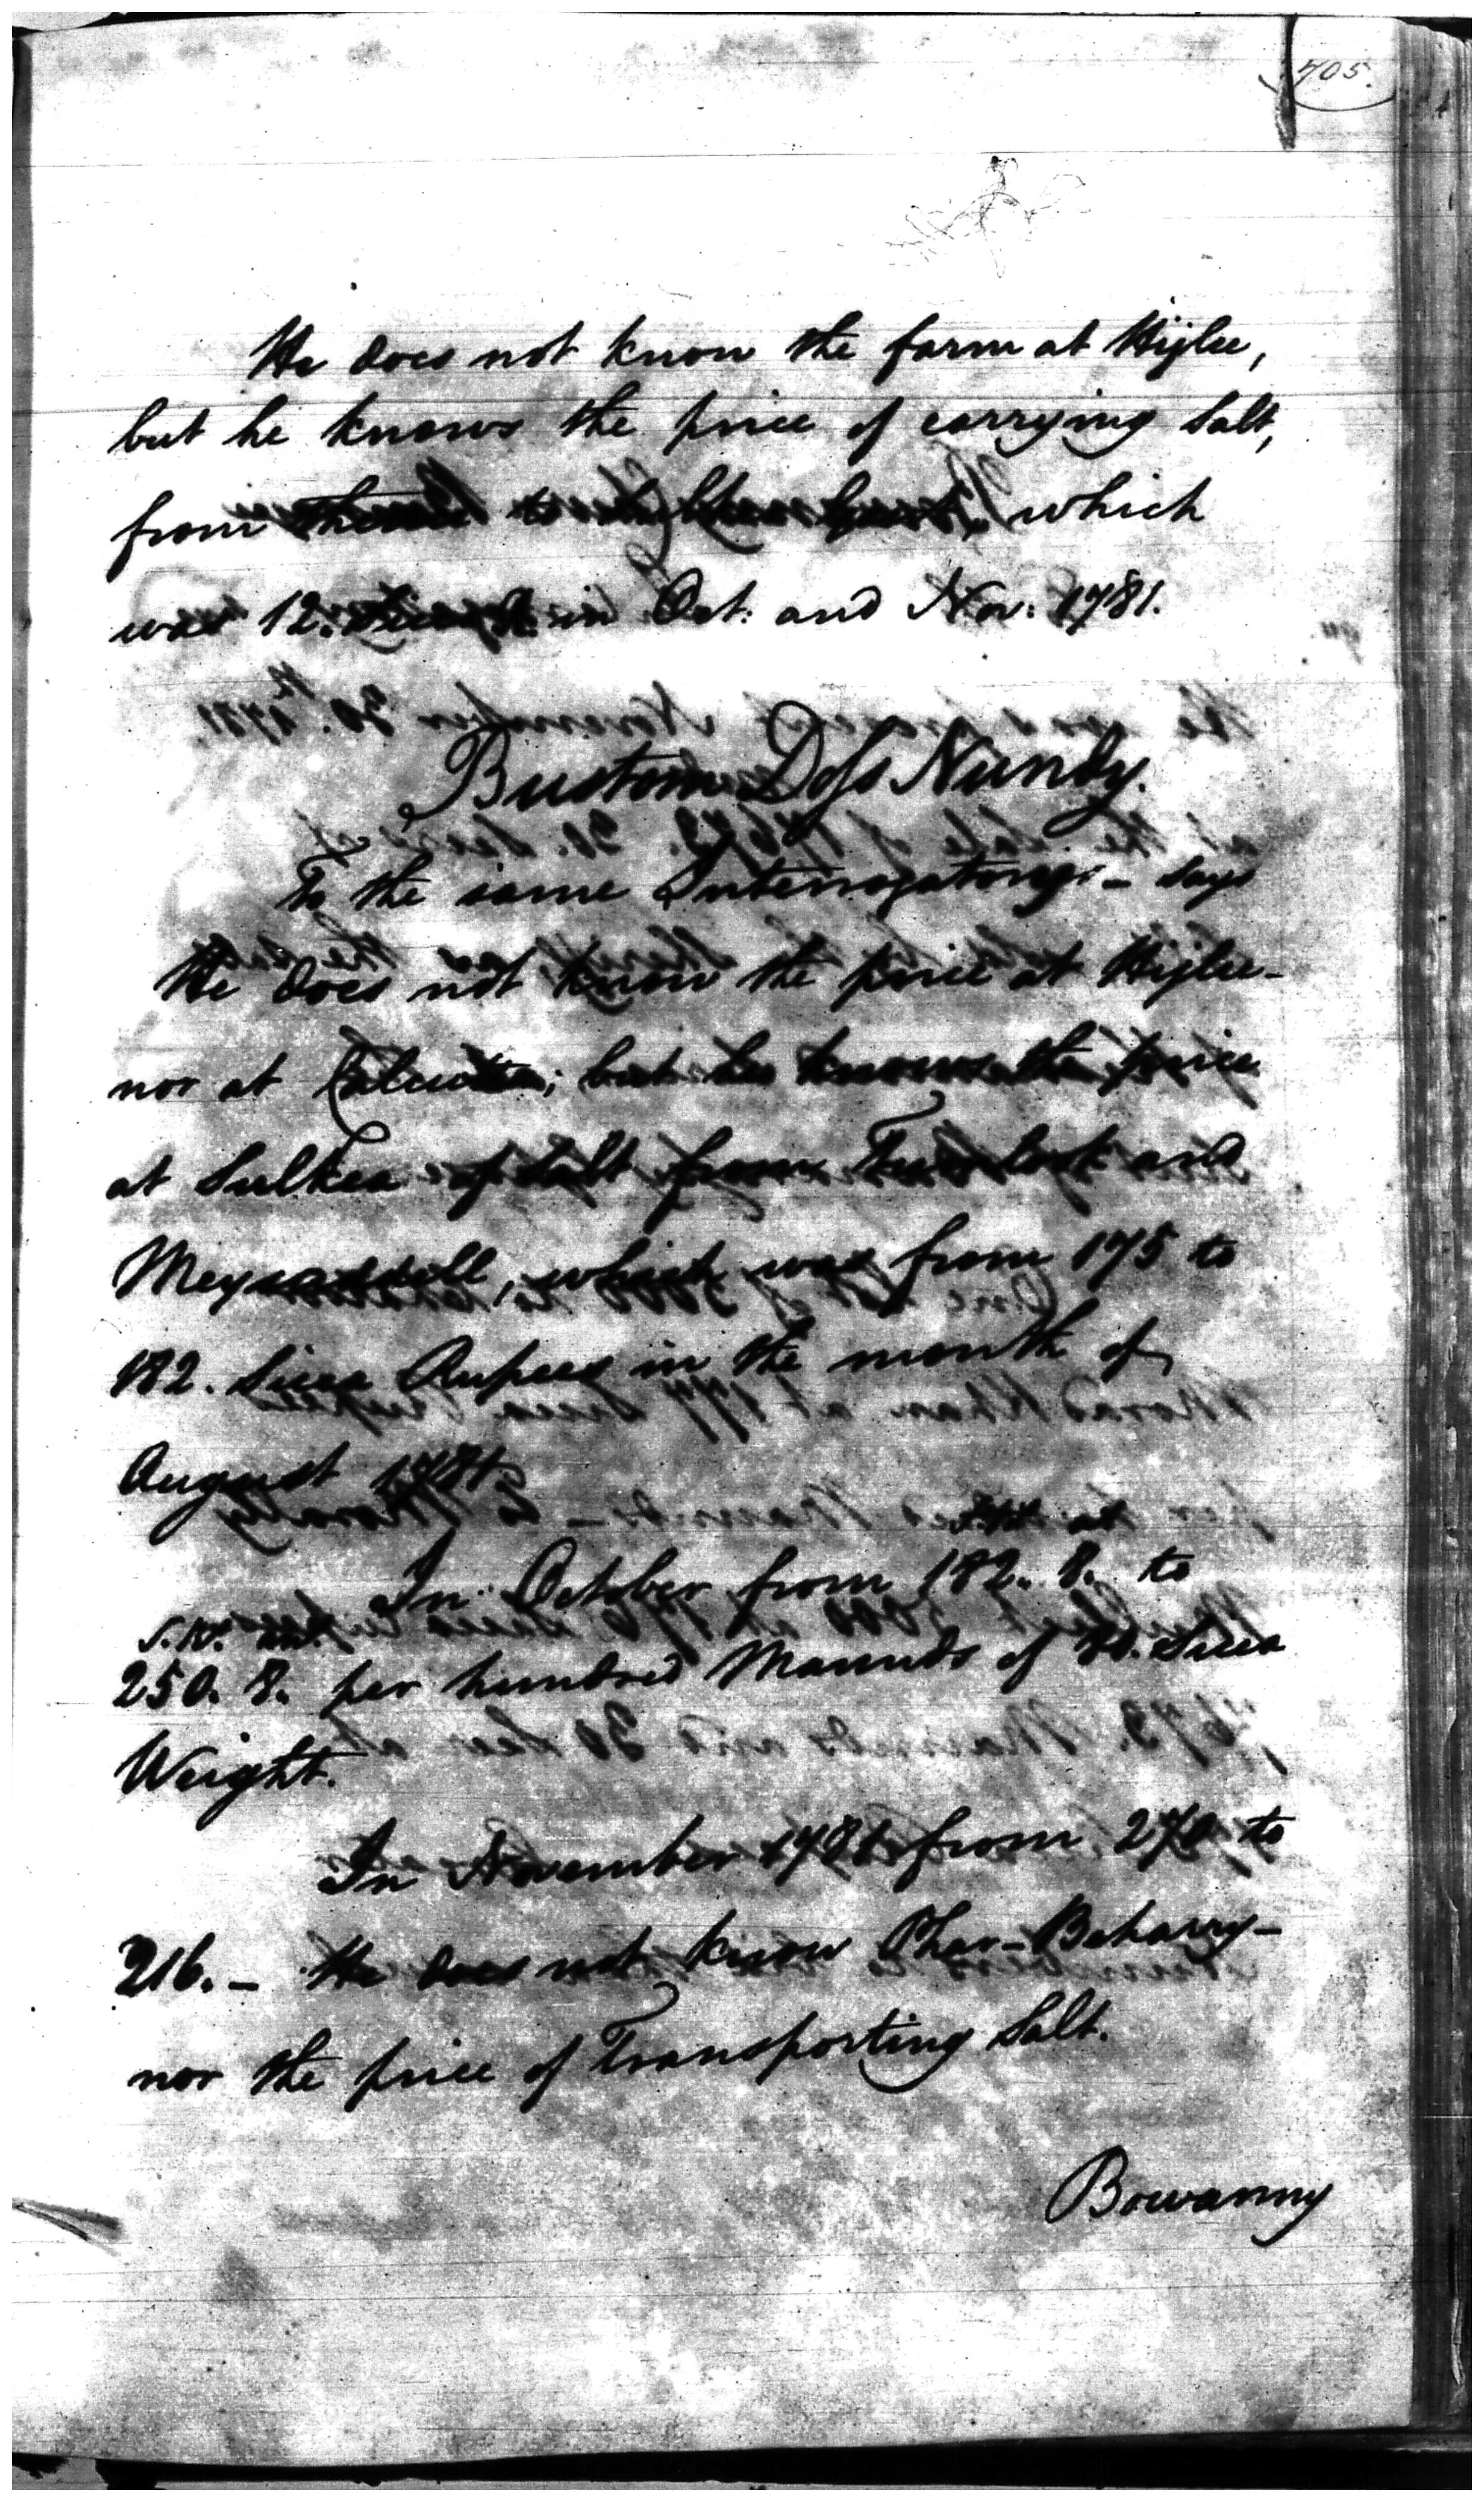 705
He does not know the farm at Hijlee,
but he knows the price of carrying Salt,
from thence to which
was 12. in Oct: and Nov: 1781.
Bustom Doss Nundy.
To the same Interrogatory - says
He does not know the price at Hijlee -
nor at Calcutta; but he knows the price
at Sulkea of Salt from Tumlook and
which was from 175 to
182. Sicca Rupees in the month of
August 1781
In October from 182. 8. to
250. 8. per hundred Maunds of Sicca
Weight.
In November 1781 from to
216. - He does not know Char-Beharry -
nor the price of Transporting Salt.
Bowanny